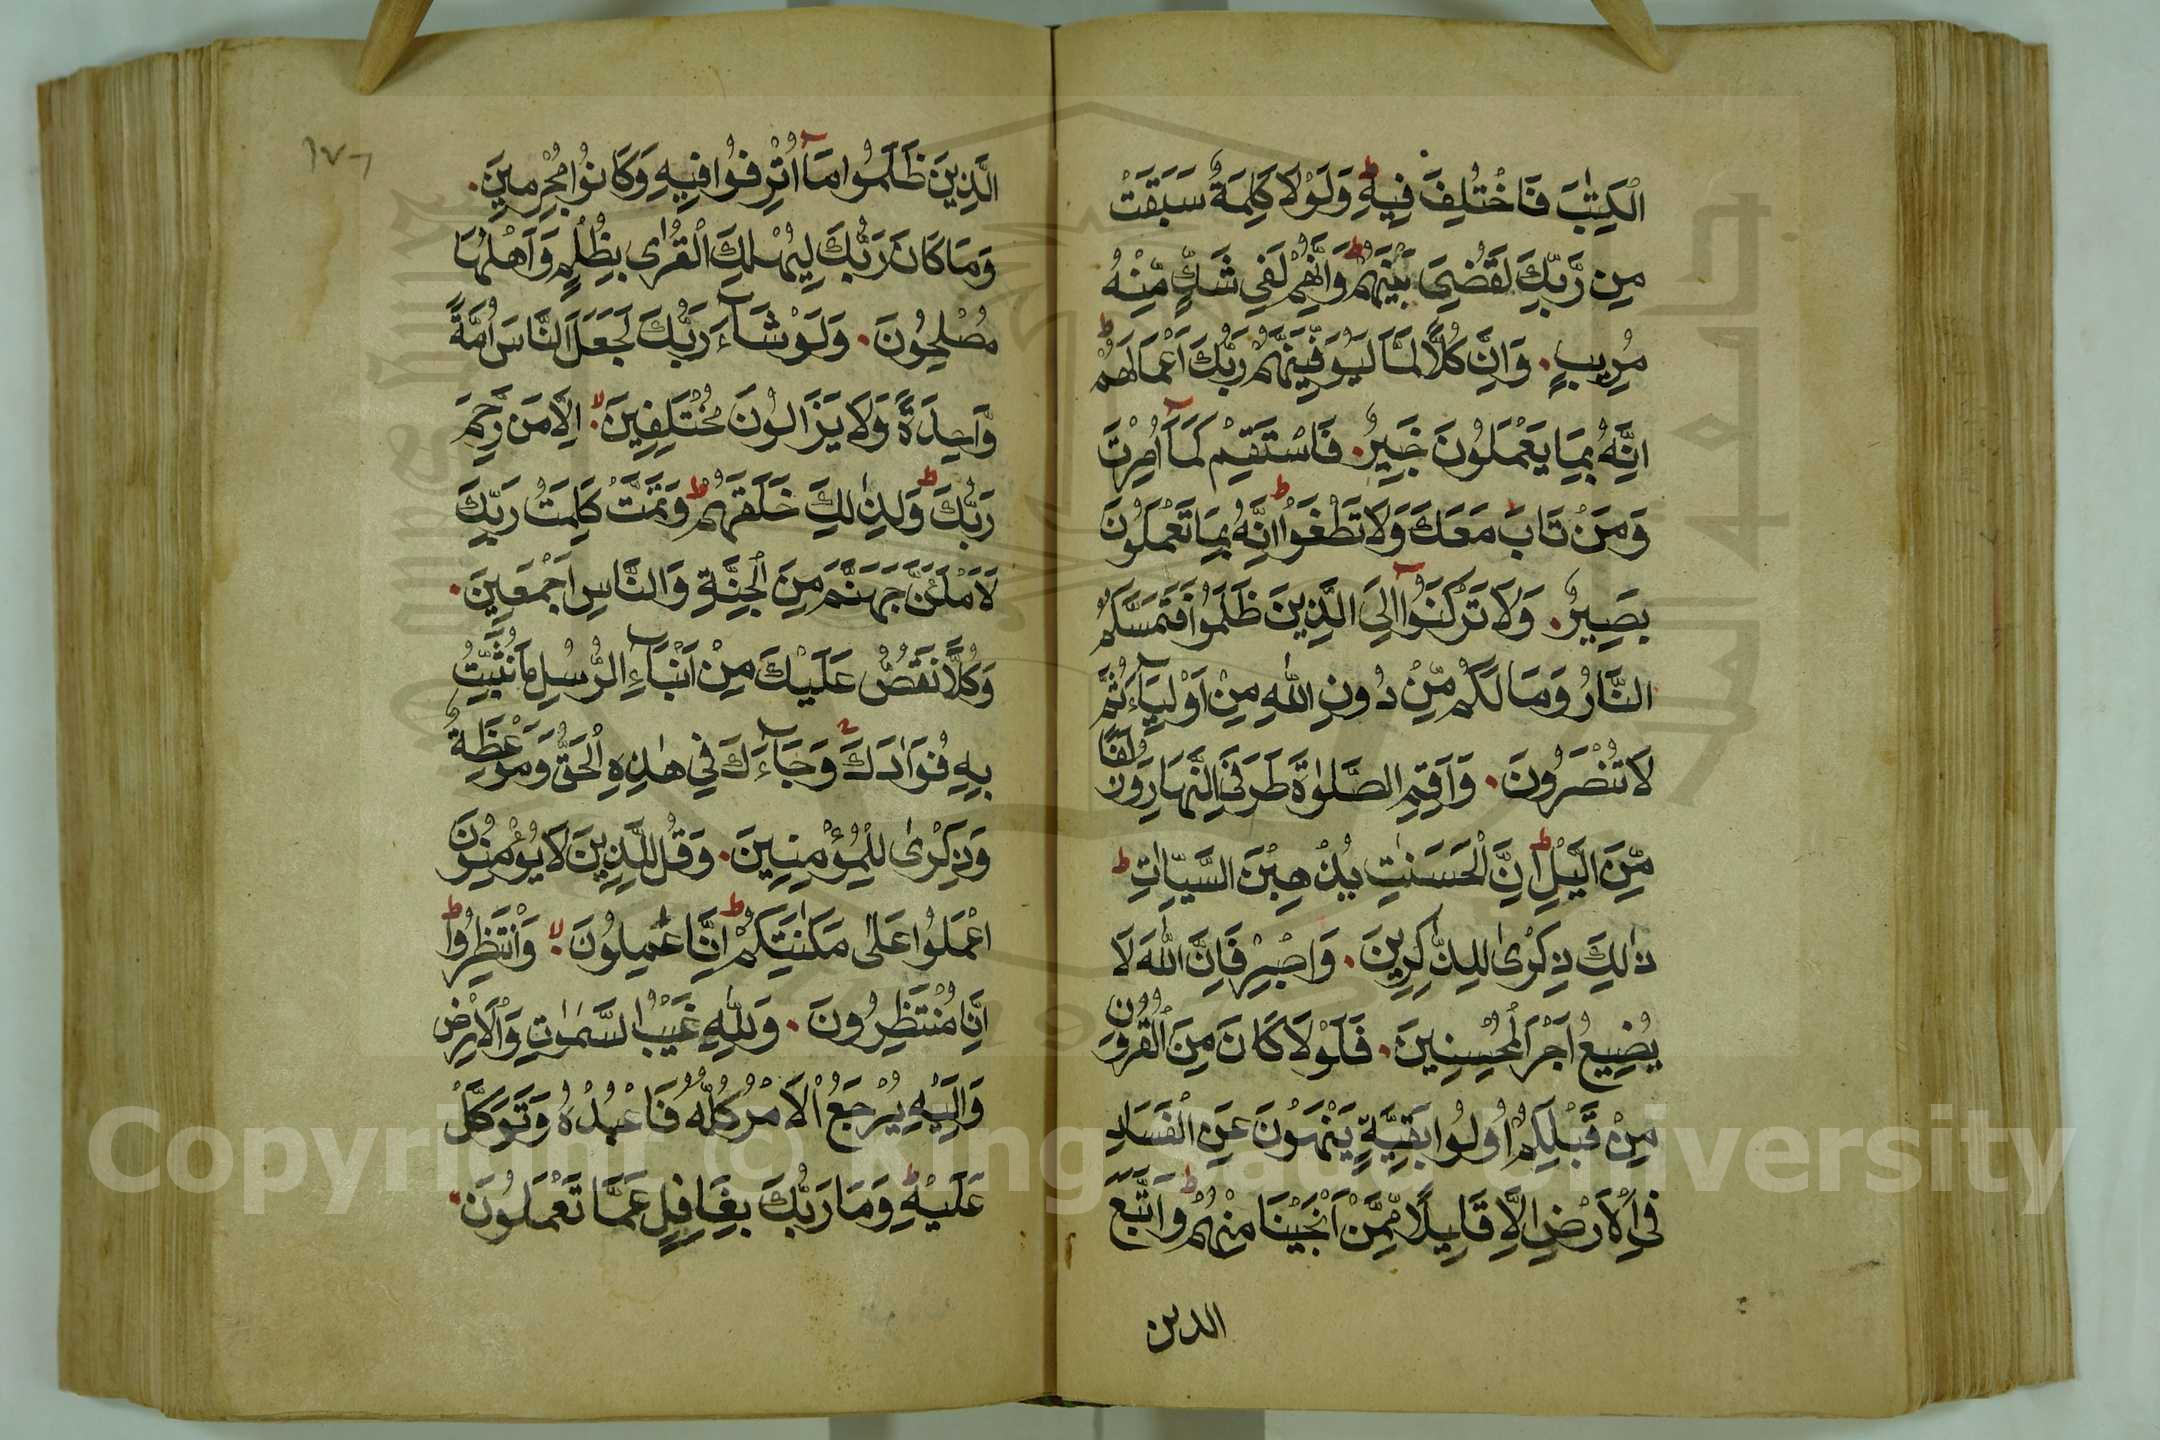 الْكِتٰبَ فَاخْتُلِفَ فِيهِ ط وَلَوْلَا كَلِمَةٌ سَبَقَتْ
مِن رَّبِّكَ لَقُضِيَ بَيْنَهُمْ ط وَاِنَّهُمْ لَفِي شَكٍّ مِّنْهُ
مُرِيبٍ . وَاِنَّ كُلًّا لَمَّا لَيُوَفِّيَنَّهُمْ رَبُّكَ اَعْمَالَهُمْ ط
اِنَّهُ بِمَا يَعْمَلُونَ خَبِيرٌ . فَاسْتَقِمْ كَمَآ اُمِرْتَ
وَمَنْ تَابَ مَعَكَ وَلَا تَطْغَوْا ط اِنَّهُ بِمَا تَعْمَلُونَ
بَصِيرٌ . وَلَا تَرْكَنُوٓا اِلَى الَّذِينَ ظَلَمُوا فَتَمَسَّكُمُ
النَّارُ وَمَا لَكُمْ مِّنْ دُونِ اللّٰهِ مِنْ اَوْلِيَآءَ ثُمَّ
لَا تُنْصَرُونَ . وَاَقِمِ الصَّلٰوةَ طَرَفَيِ النَّهَارِ وَزُلَفًا
مِّنَ الَّيْلِ ط اِنَّ الْحَسَنٰتِ يُذْهِبْنَ السَّيِّاٰتِ ط
ذٰلِكَ ذِكْرٰى لِلذّٰكِرِينَ . وَاصْبِرْ فَاِنَّ اللّٰهَ لَا
يُضِيعُ اَجْرَ الْمُحْسِنِينَ . فَلَوْلَا كَانَ مِنَ الْقُرُونِ
مِنْ قَبْلِكُمْ اُولُوا بَقِيَّةٍ يَنْهَوْنَ عَنِ الْفَسَادِ
فِي الْاَرْضِ اِلَّا قَلِيلًا مِّمَّنْ اَنْجَيْنَا مِنْهُمْ ط وَاتَّبَعَ
الذين
١٧٦
الَّذِينَ ظَلَمُوا مَآ اُتْرِفُوا فِيهِ وَكَانُوا مُجْرِمِينَ .
وَمَا كَانَ رَبُّكَ لِيُهْلِكَ الْقُرٰى بِظُلْمٍ وَاَهْلُهَا
مُصْلِحُونَ . وَلَوْ شَآءَ رَبُّكَ لَجَعَلَ النَّاسَ اُمَّةً
وَّاحِدَةً وَلَا يَزَالُونَ مُخْتَلِفِينَ . لا اِلَّا مَن رَّحِمَ
رَبُّكَ ط وَلِذٰلِكَ خَلَقَهُمْ ط وَتَمَّتْ كَلِمَتُ رَبِّكَ
لَاَمْلَئَنَّ جَهَنَّمَ مِنَ الْجِنَّةِ وَالنَّاسِ اَجْمَعِينَ .
وَكُلًّا نَقُصُّ عَلَيْكَ مِنْ اَنْبَآءِ الرُّسُلِ مَا نُثَبِّتُ
بِهِ فُوَادَكَ ج وَجَآءَكَ فِي هٰذِهِ الْحَقُّ وَمَوْعِظَةٌ
وَذِكْرٰى لِلْمُؤْمِنِينَ . وَقُل لِّلَّذِينَ لَا يُؤْمِنُونَ
اعْمَلُوا عَلٰى مَكَانَتِكُمْ ط اِنَّا عٰمِلُونَ . لا وَانْتَظِرُوا ط
اِنَّا مُنْتَظِرُونَ . وَلِلّٰهِ غَيْبُ السَّمٰوٰتِ وَالْاَرْضِ
وَاِلَيْهِ يُرْجَعُ الْاَمْرُ كُلُّهُ فَاعْبُدْهُ وَتَوَكَّلْ
عَلَيْهِ ط وَمَا رَبُّكَ بِغَافِلٍ عَمَّا تَعْمَلُونَ .
Copyright © King Saud University